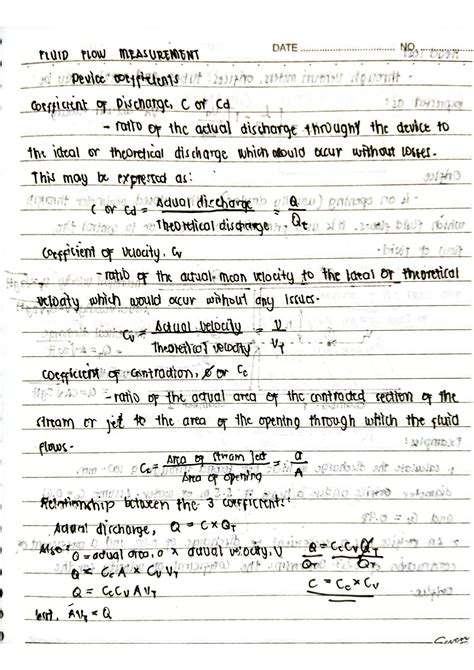 DATE NO.
FLUID FLOW MEASUREMENT
Device coefficients
Coefficient of Discharge, C or Cd
- ratio of the actual discharge throughy the device to
the ideal or theoretical discharge which would occur without losses.
This may be expressed as:
C or Cd = Actual discharge / Theoretical discharge = Q / Qt
Coefficient of velocity, Cv
- ratio of the actual mean velocity to the ideal or theoretical
velocity which would occur without any issues.
Cv = Actual velocity / Theoretical velocity = v / VT
Coefficient of contraction, or Cc
- ratio of the actual area of the contracted section of the
stream or jet to the area of the opening through which the fluid
flows.
Cc = Area of stream jet / Area of opening = a / A
Relationship between the 3 coefficients:
Actual discharge, Q = C x QT
Also: Q = actual area, a x actual velocity, V
Q = Cc A x Cv VT
Q = Cc Cv A VT
but, AVT = Q
Q / QT = Cc Cv QT / QT
C = Cc x Cv